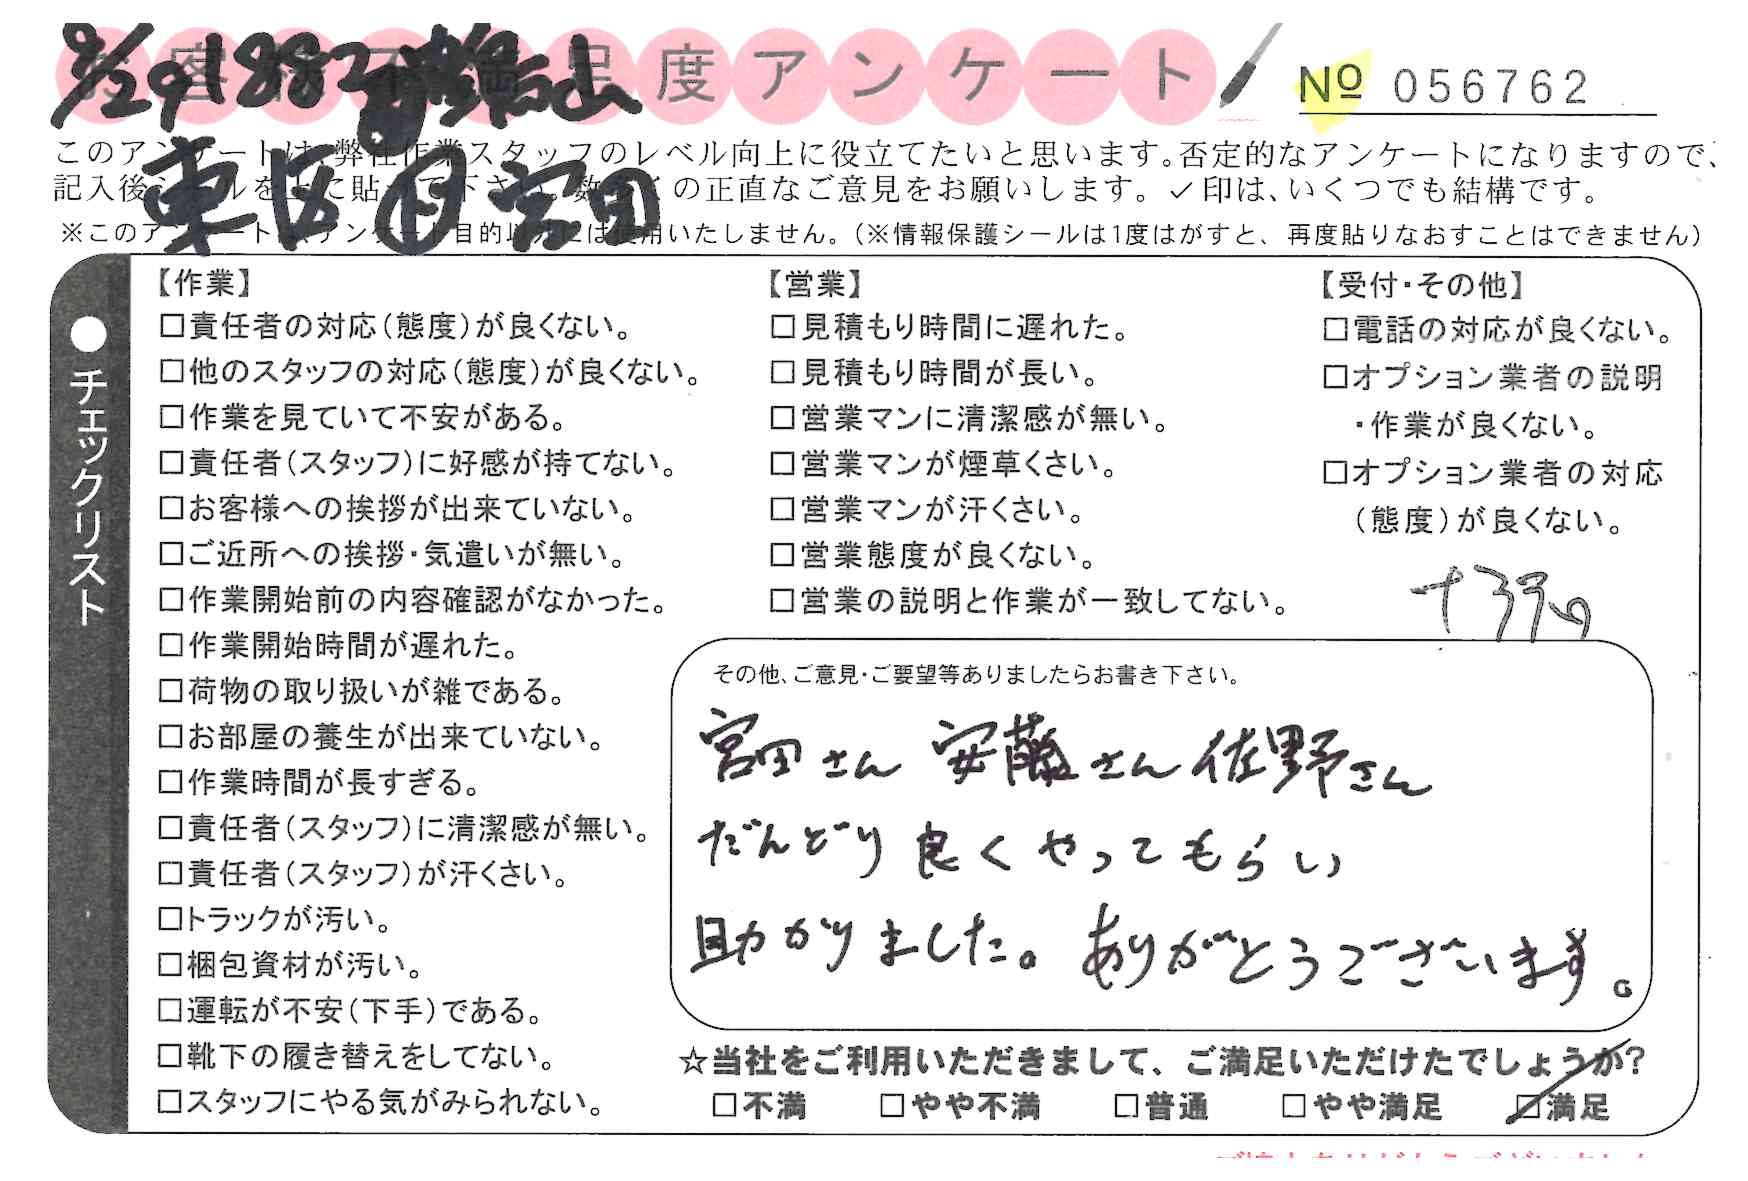 お客様不満足度アンケート
№ 056762
東区 宮田
このアンケートは、弊社作業スタッフのレベル向上に役立てたいと思います。否定的なアンケートになりますので、
記入後シールを上に貼って下さい。数多くの正直なご意見をお願いします。✓印は、いくつでも結構です。
※このアンケートはアンケート目的以外には使用いたしません。(※情報保護シールは1度はがすと、再度貼りなおすことはできません)
●チェックリスト
【作業】
□責任者の対応(態度)が良くない。
□他のスタッフの対応(態度)が良くない。
□作業を見ていて不安がある。
□責任者(スタッフ)に好感が持てない。
□お客様への挨拶が出来ていない。
□ご近所への挨拶・気遣いが無い。
□作業開始前の内容確認がなかった。
□作業開始時間が遅れた。
□荷物の取り扱いが雑である。
□お部屋の養生が出来ていない。
□作業時間が長すぎる。
□責任者(スタッフ)に清潔感が無い。
□責任者(スタッフ)が汗くさい。
□トラックが汚い。
□梱包資材が汚い。
□運転が不安(下手)である。
□靴下の履き替えをしてない。
□スタッフにやる気がみられない。
【営業】
□見積もり時間に遅れた。
□見積もり時間が長い。
□営業マンに清潔感が無い。
□営業マンが煙草くさい。
□営業マンが汗くさい。
□営業態度が良くない。
□営業の説明と作業が一致してない。
【受付・その他】
□電話の対応が良くない。
□オプション業者の説明
・作業が良くない。
□オプション業者の対応
(態度)が良くない。
その他、ご意見・ご要望等ありましたらお書き下さい。
宮田さん 安藤さん 佐野さん
だんどり良くやってもらい
助かりました。ありがとうございます。
☆当社をご利用いただきまして、ご満足いただけたでしょうか?
□不満 □やや不満 □普通 □やや満足 ☑満足